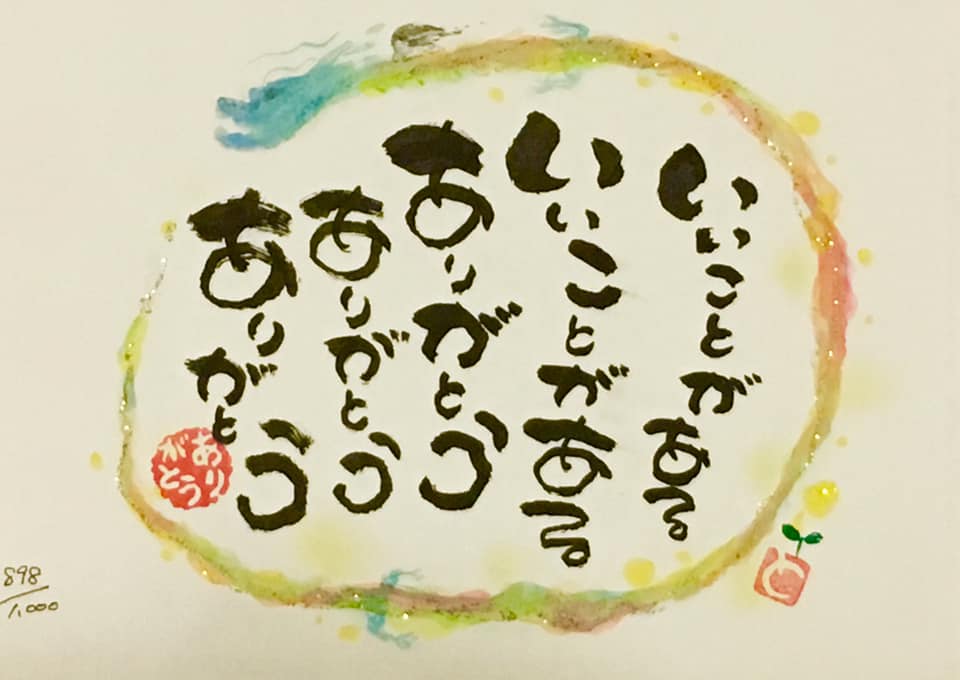 いいことがある
いいことがある
ありがとう
ありがとう
ありがとう
ありがとう
898/1,000